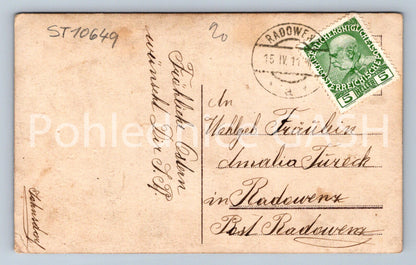 ST10649
20
RADOWENZ
15 IV. 11
a
KAISERLICHE KÖNIGLICHE
ÖSTERREICHISCHE POST
5 HELLER 5
Fröhliche Ostern
wünscht Dir S.P
Jahnsdorf
An
Wohlgeb Fräulein
Amalia Tureck
in Radowenz
Post Radowenz
Pohlednice GASH